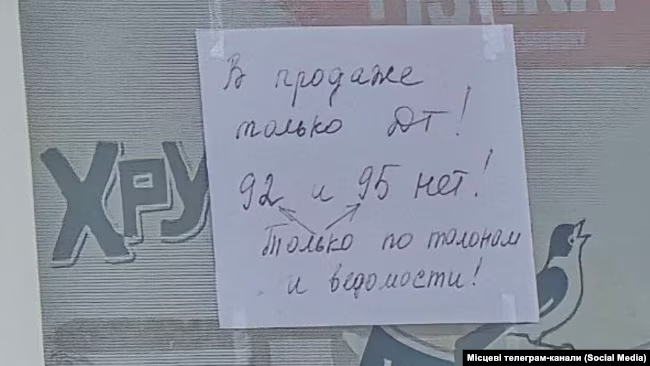 В продаже
только ДТ!
92 и 95 нет!
Только по талонам
и ведомости!
ХРУ
Місцеві телеграм-канали (Social Media)